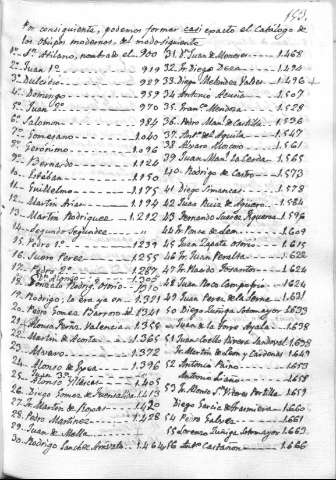 153.
Por consiguiente, podemos formar casi exacto el Catálogo de
los obispos modernos, del modo siguiente
1º Sn. Atilano, nombrado el 900
Juan 1º 919
Dulcidio 927
4º Domingo 957
5º Juan 2º 970
6º Salomon 984
7º Gomesano 1.040
8º Gerónimo 1.096
9º Bernardo 1.126
10. Estéban 1.150
11. Guillelmo 1.175
12. Martin Arias 1.194
13. Martin Rodriguez 1.212
14. Segundo Segundez "
15. Pedro 1º 1.239
16. Suero Perez 1.255
17. Pedro 2º 1.287
18. Gonzalo Rodrig. Osorio 1.310
19. Rodrigo, lo era ya en 1.331
20. Pedro Gomez Barroso 1.341
21. Alonso Fernz. Valencia 1.355
22. Martin de Acosta 1.365
23. Alvaro 1.372
24. Alonso de 1.396
25. Alonso Illescas 1.405
26. Diego Gomez de Fuensalida 1.413
27. Fr. Martin de Rojas 1.420
28. Pedro Martinez 1.428
29. Juan de Mella
30. Rodrigo Sanchez Arévalo 1.464
31. Dn. Juan de Meneses 1.468
32. Fr. Diego Deza 1.494
33. Diego Melendez Valdes 1.496
34. Antonio Acuña 1.507
35. Franco. Mendoza 1.528
36. Pedro Manl. de Castilla 1.536
37. Anto. del Aguila 1.547
38. Alvaro Moscoso 1.561
39. Juan Manl. La Cerda 1.565
40. Rodrigo de Castro 1.573
41. Diego Simancas 1.578
42. Juan Ruiz de Agüero 1.584
43. Fernando Suarez Figueroa 1.596
44. Fr. Ponce de Leon 1.609
45. Juan Zapata Osorio 1.615
46. Fr. Juan Peralta 1.622
47. Fr. Placido Tosantos 1.624
48. Juan Roco Campofrio 1.624
49. Juan Perez de la Serna 1.631
50. Diego Zuñiga Sotomayor 1.633
Juan de la Torre Ayala 1.638
51. Juan Coello Rivera Sandoval 1.638
Fr. Martin de Leon y Cárdenas 1.649
52. Antonio Paino 1.653
Antonio
53. Fr. Alonso Sn. Vitores Portilla 1.659
Diego Garcia de Trasmiera 1.660
54. Pedro Galvez 1.661
55. Lorenzo Zuñiga Sotomayor 1.663
56. Anto. Castañon 1.666